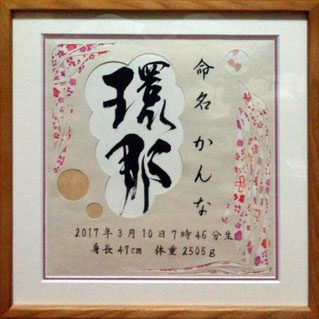 命名かんな
環那
2017年3月10日7時46分生
身長47cm 体重2505g